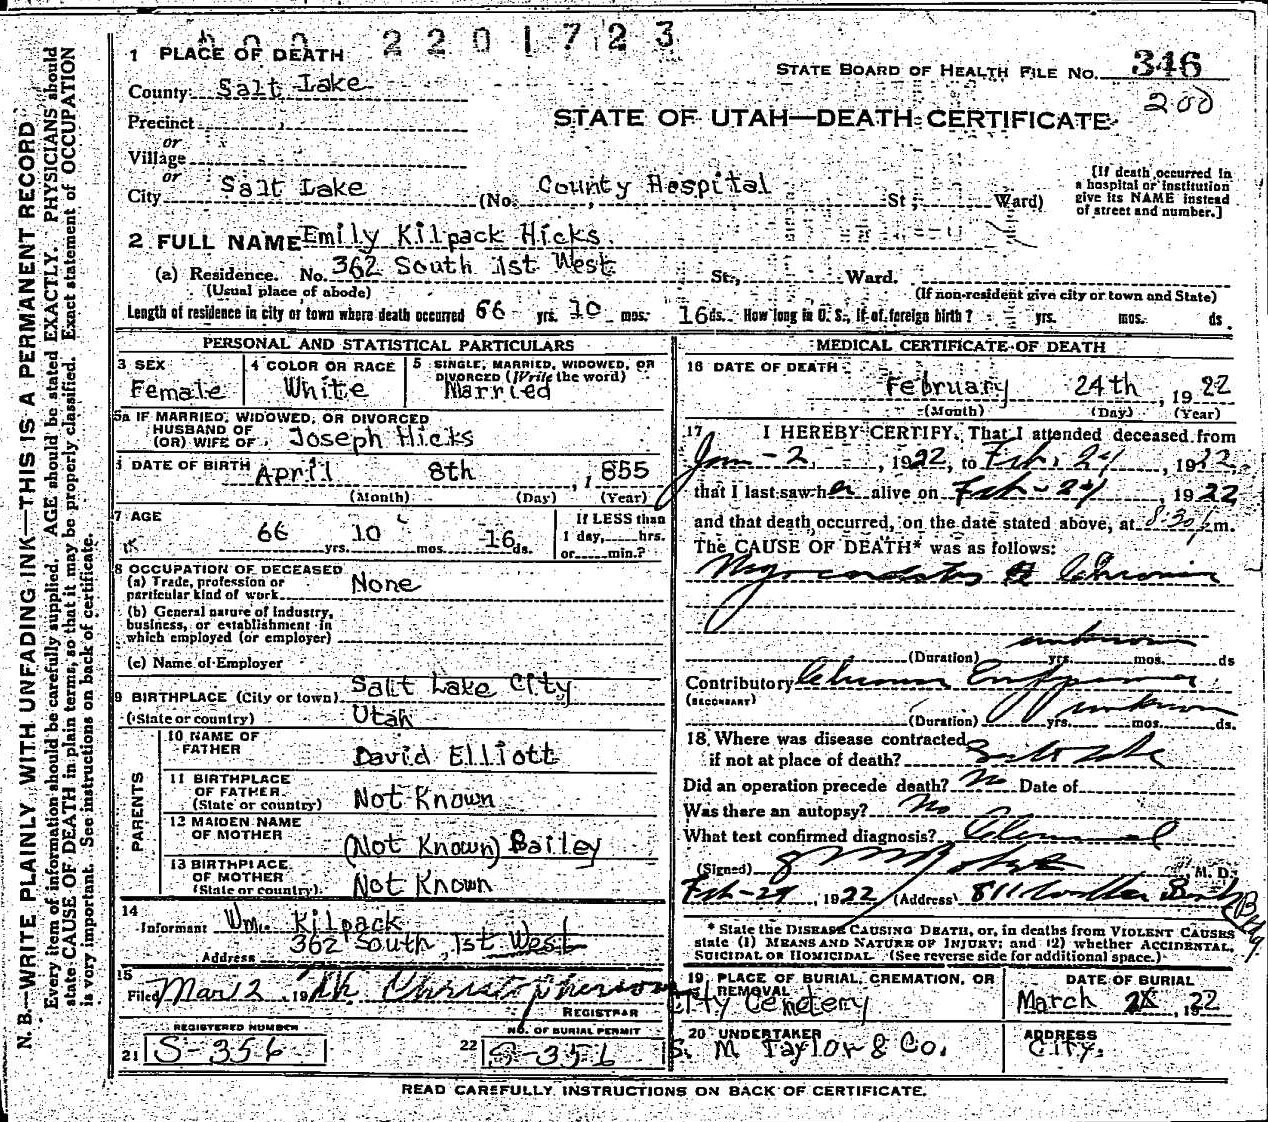 2201723
1 PLACE OF DEATH
STATE BOARD OF HEALTH FILE NO. 346
County Salt Lake
200
STATE OF UTAH—DEATH CERTIFICATE
Precinct
or
Village
or
City Salt Lake (No. County Hospital St; Ward)
[If death occurred in a hospital or institution give its NAME instead of street and number.]
2 FULL NAME Emily Kilpack Hicks
(a) Residence. No. 362 South 1st West St., Ward.
(Usual place of abode) (If non-resident give city or town and State)
Length of residence in city or town where death occurred 66 yrs. 10 mos. 16 ds. How long in U. S., if of foreign birth? yrs. mos. ds.
PERSONAL AND STATISTICAL PARTICULARS
3 SEX Female
4 COLOR OR RACE White
5 SINGLE, MARRIED, WIDOWED, OR DIVORCED (Write the word) Married
5a IF MARRIED, WIDOWED, OR DIVORCED
HUSBAND OF
(OR) WIFE OF Joseph Hicks
DATE OF BIRTH April 8th, 1855
(Month) (Day) (Year)
7 AGE 66 yrs. 10 mos. 16 ds.
If LESS than 1 day, hrs. or min.?
8 OCCUPATION OF DECEASED
(a) Trade, profession or particular kind of work None
(b) General nature of Industry, business, or establishment in which employed (or employer)
(c) Name of Employer
9 BIRTHPLACE (City or town) Salt Lake City
(State or country) Utah
PARENTS
10 NAME OF FATHER David Elliott
11 BIRTHPLACE OF FATHER (State or country) Not Known
12 MAIDEN NAME OF MOTHER (Not Known) Bailey
13 BIRTHPLACE OF MOTHER (State or country) Not Known
14
Informant Wm. Kilpack
Address 362 South 1st West
15
Filed Mar 12, 19 Christopherson
REGISTRAR
21 REGISTERED NUMBER S-356
22 NO. OF BURIAL PERMIT S-356
MEDICAL CERTIFICATE OF DEATH
16 DATE OF DEATH February 24th, 1922
(Month) (Day) (Year)
17 I HEREBY CERTIFY, That I attended deceased from
Jan - 2, 1922, to Feb. 24, 1922
that I last saw her alive on Feb - 24, 1922
and that death occurred, on the date stated above, at 8:30 m.
The CAUSE OF DEATH* was as follows:
Myocarditis Chronic
unknown
(Duration) yrs. mos. ds
Contributory Chronic
(SECONDARY)
unknown
(Duration) yrs. mos. ds.
18 Where was disease contracted
if not at place of death?
Did an operation precede death? No Date of
Was there an autopsy? No
What test confirmed diagnosis? Clinical
(Signed) , M. D.
Feb-24, 1922 (Address) 811 Bank Bldg.
* State the DISEASE CAUSING DEATH, or, in deaths from VIOLENT CAUSES
state (1) MEANS AND NATURE OF INJURY; and (2) whether ACCIDENTAL,
SUICIDAL OR HOMICIDAL (See reverse side for additional space.)
19 PLACE OF BURIAL, CREMATION, OR REMOVAL City Cemetery
DATE OF BURIAL March , 1922
20 UNDERTAKER S. M Taylor & Co.
ADDRESS City.
READ CAREFULLY INSTRUCTIONS ON BACK OF CERTIFICATE.
N. B.—WRITE PLAINLY WITH UNFADING INK—THIS IS A PERMANENT RECORD
Every item of information should be carefully supplied. AGE should be stated EXACTLY. PHYSICIANS should
state CAUSE OF DEATH in plain terms, so that it may be properly classified. Exact statement of OCCUPATION
is very important. See instructions on back of certificate.